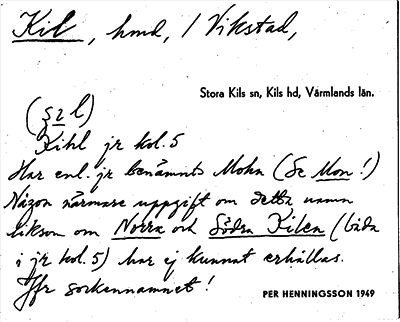 Kil, hmd, / Vikstad,
Stora Kils sn, Kils hd, Värmlands län.
(şı̲l)
Kihl jr kol. 5
Har enl. jr benämnts Mohn (Se Mon!)
Någon närmare uppgift om detta namn
liksom om Norra och Södra Kilen (båda
i jr kol. 5) har ej kunnat erhållas.
Jfr sockennamnet!
PER HENNINGSSON 1949